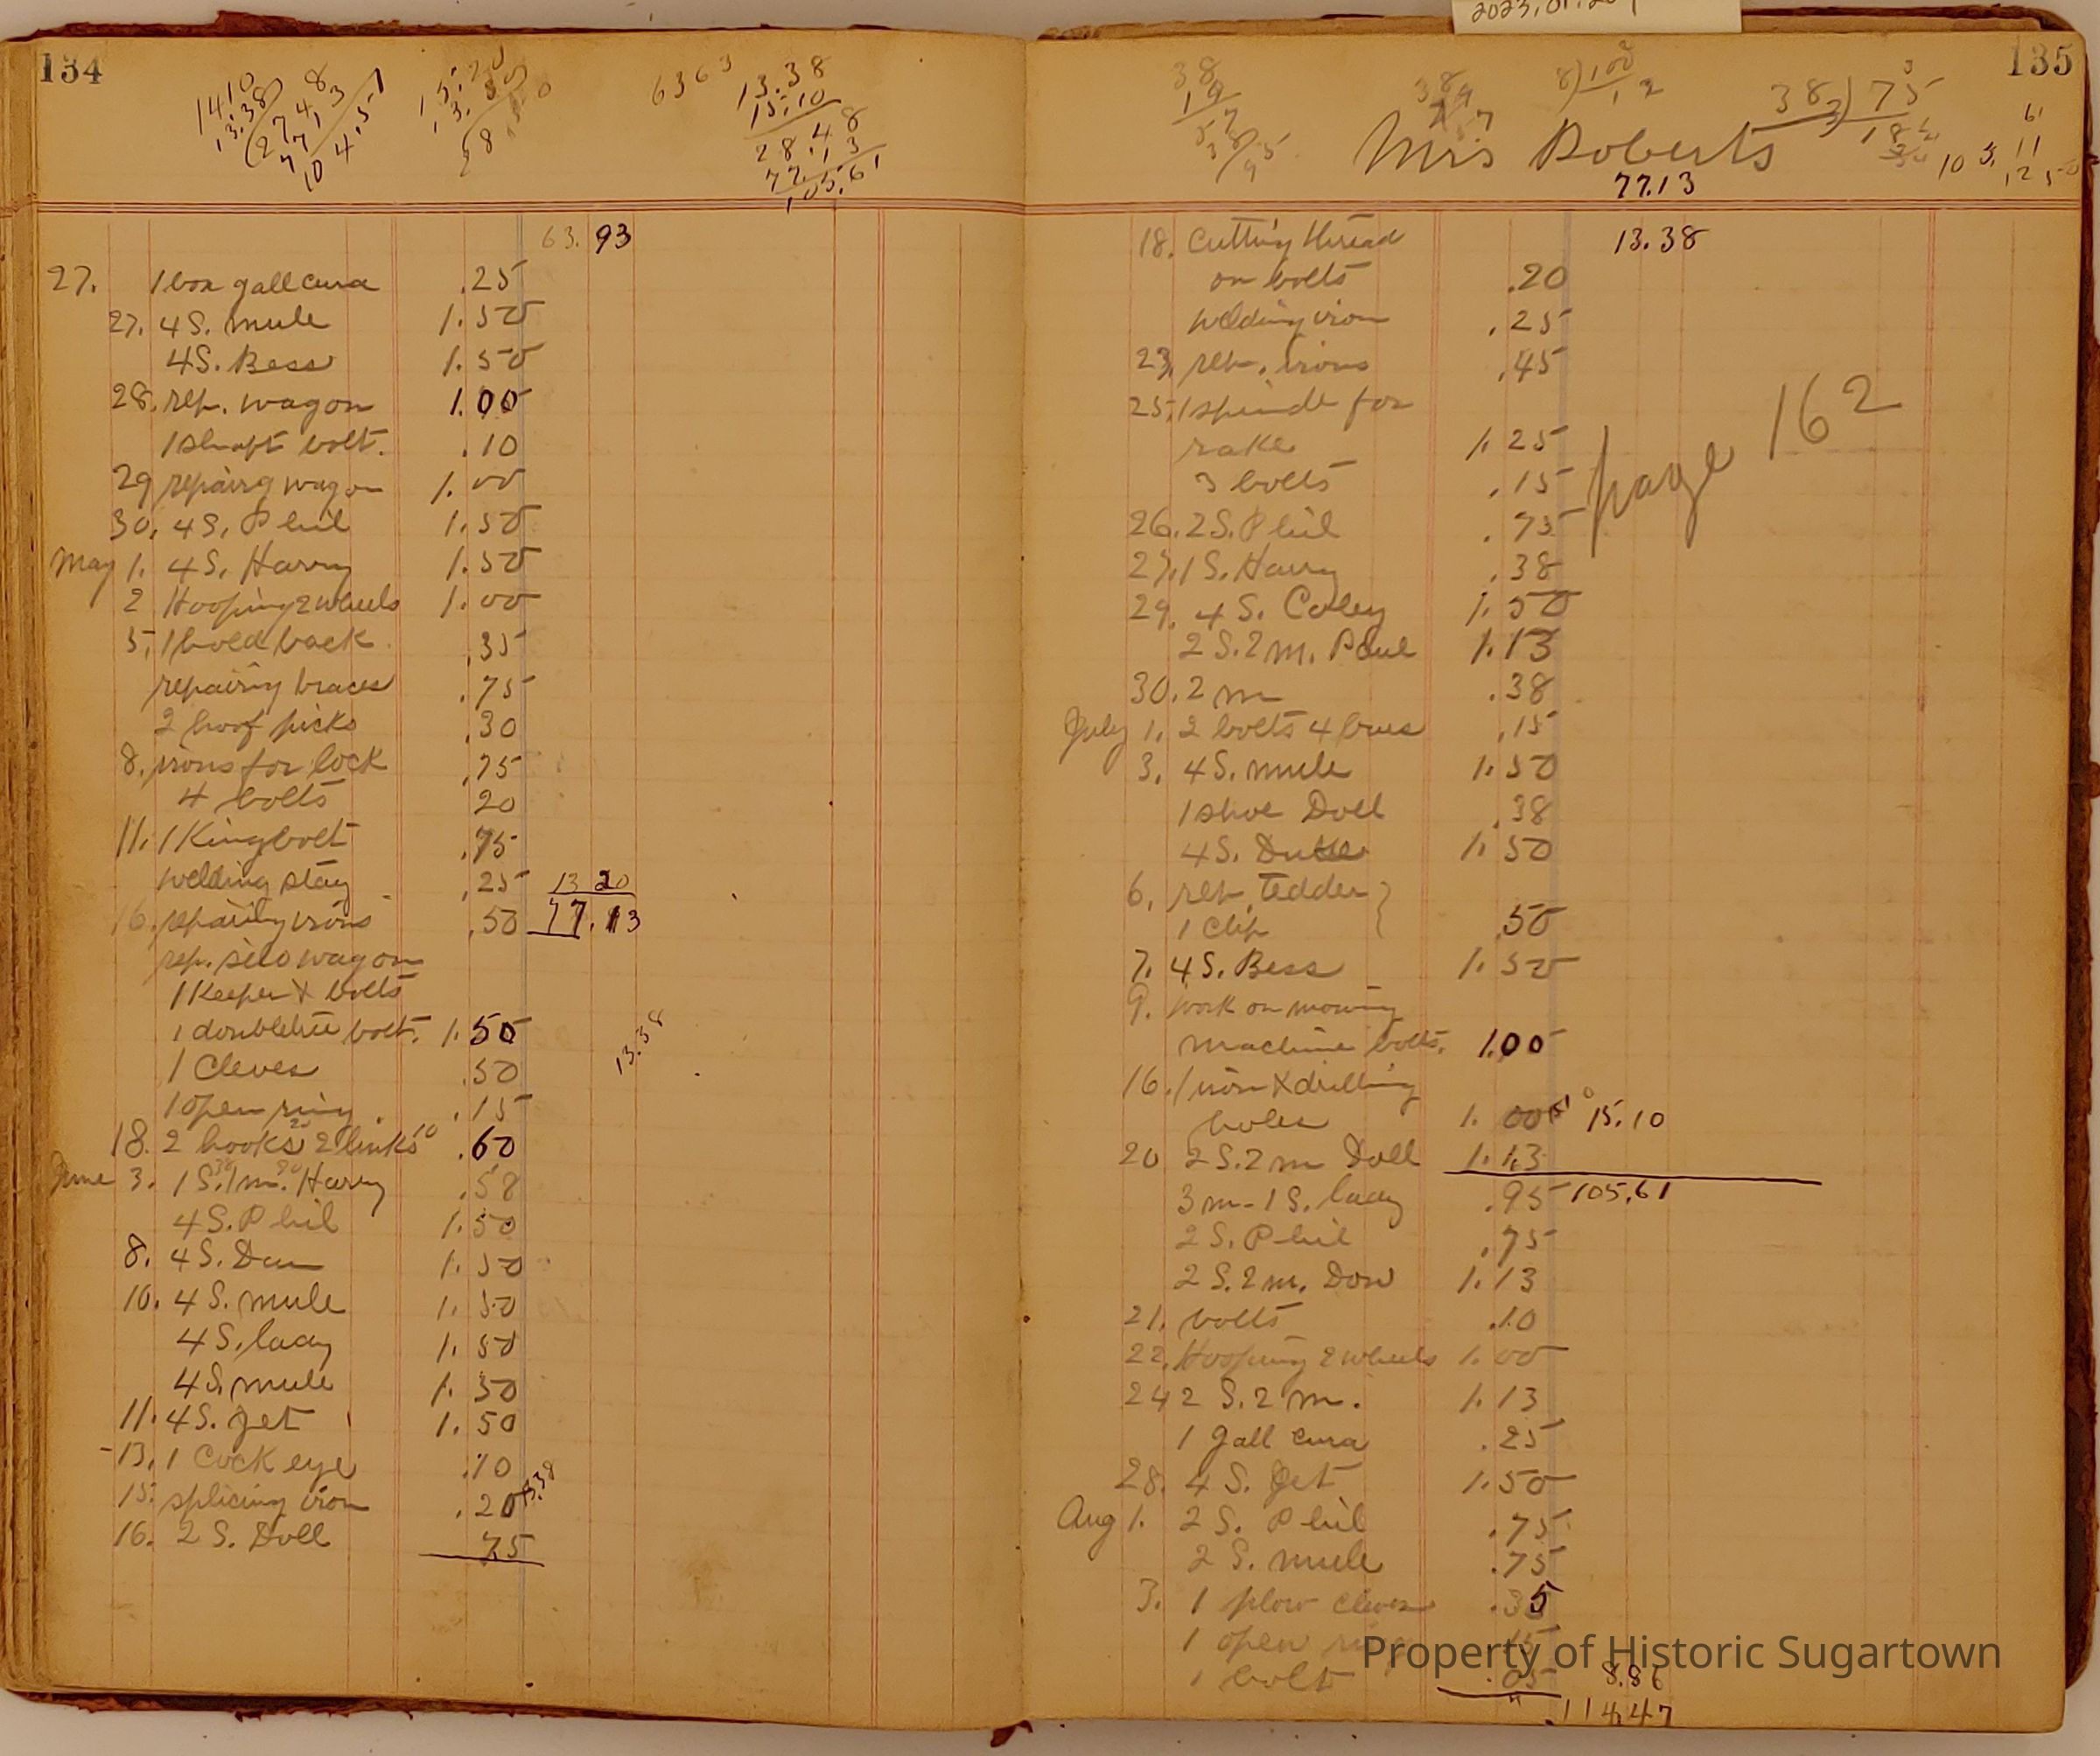 2023.01.20
134
14.10
13.38
27 48
77,13
104.51
6363
13.38
15.10
28.48
77.13
105.61
63.93
27. 1 box gall cura .25
27. 4 S. mule 1.50
4 S. Bess 1.50
28. rep. wagon 1.00
1 shaft bolt. .10
29 repairg wagon 1.00
30. 4 S. Phil 1.50
May 1. 4 S. Harry 1.50
2 Hooping 2 wheels 1.00
5. 1 hold back .35
repairing braces .75
2 hoof picks .30
8. irons for lock .75
4 bolts 20
11. 1 Kingbolt .75
welding stay .25 13 20
16. repairing irons .50 77.13
rep. silo wagon
1 Keeper & bolts
1 doubletree bolt. 1.50
1 Cleves .50
13.38
1 open ring .15
18. 2 hooks 2 links 10 .60
June 3. 1 S. 1 m. Harry .58
4 S. Phil 1.50
8. 4 S. Dan 1.50
10. 4 S. mule 1.50
4 S. lady 1.50
4 S. mule 1.50
11. 4 S. Jet 1.50
13. 1 Cock eye .10
15. splicing iron .20 13.38
16. 2 S. Doll 75
135
38
19
57
38
95
8)100
12
38)75
Mrs Roberts
77.13
18. Cutting thread 13.38
on bolts .20
welding iron .25
23. rep. irons .45
25. 1 spindle for
rake 1.25
3 bolts .15
page 162
26. 2 S. Phil .75
27. 1 S. Harry .38
29. 4 S. Coley 1.50
2 S. 2 m. Paul 1.13
30. 2 m .38
July 1. 2 bolts 4 burs .15
3. 4 S. mule 1.50
1 shoe Doll .38
4 S. Duke 1.50
6. rep. Tedder
1 clip .50
7. 4 S. Bess 1.50
9. work on mowing
machine bolts. 1.00
16. 1 iron & drilling
holes 1.00 15.10
20 2 S. 2 m Doll 1.13
3 m - 1 S. lady .95 105.61
2 S. Phil .75
2 S. 2 m. Don 1.13
21. bolts .10
22. Hooping 2 wheels 1.00
24 2 S. 2 m. 1.13
1 gall cura .25
28. 4 S. Jet 1.50
Aug 1. 2 S. Phil .75
2 S. mule .75
3. 1 plow cleves .35
1 open ring 15
1 bolt .05 8.86
114.47
Property of Historic Sugartown